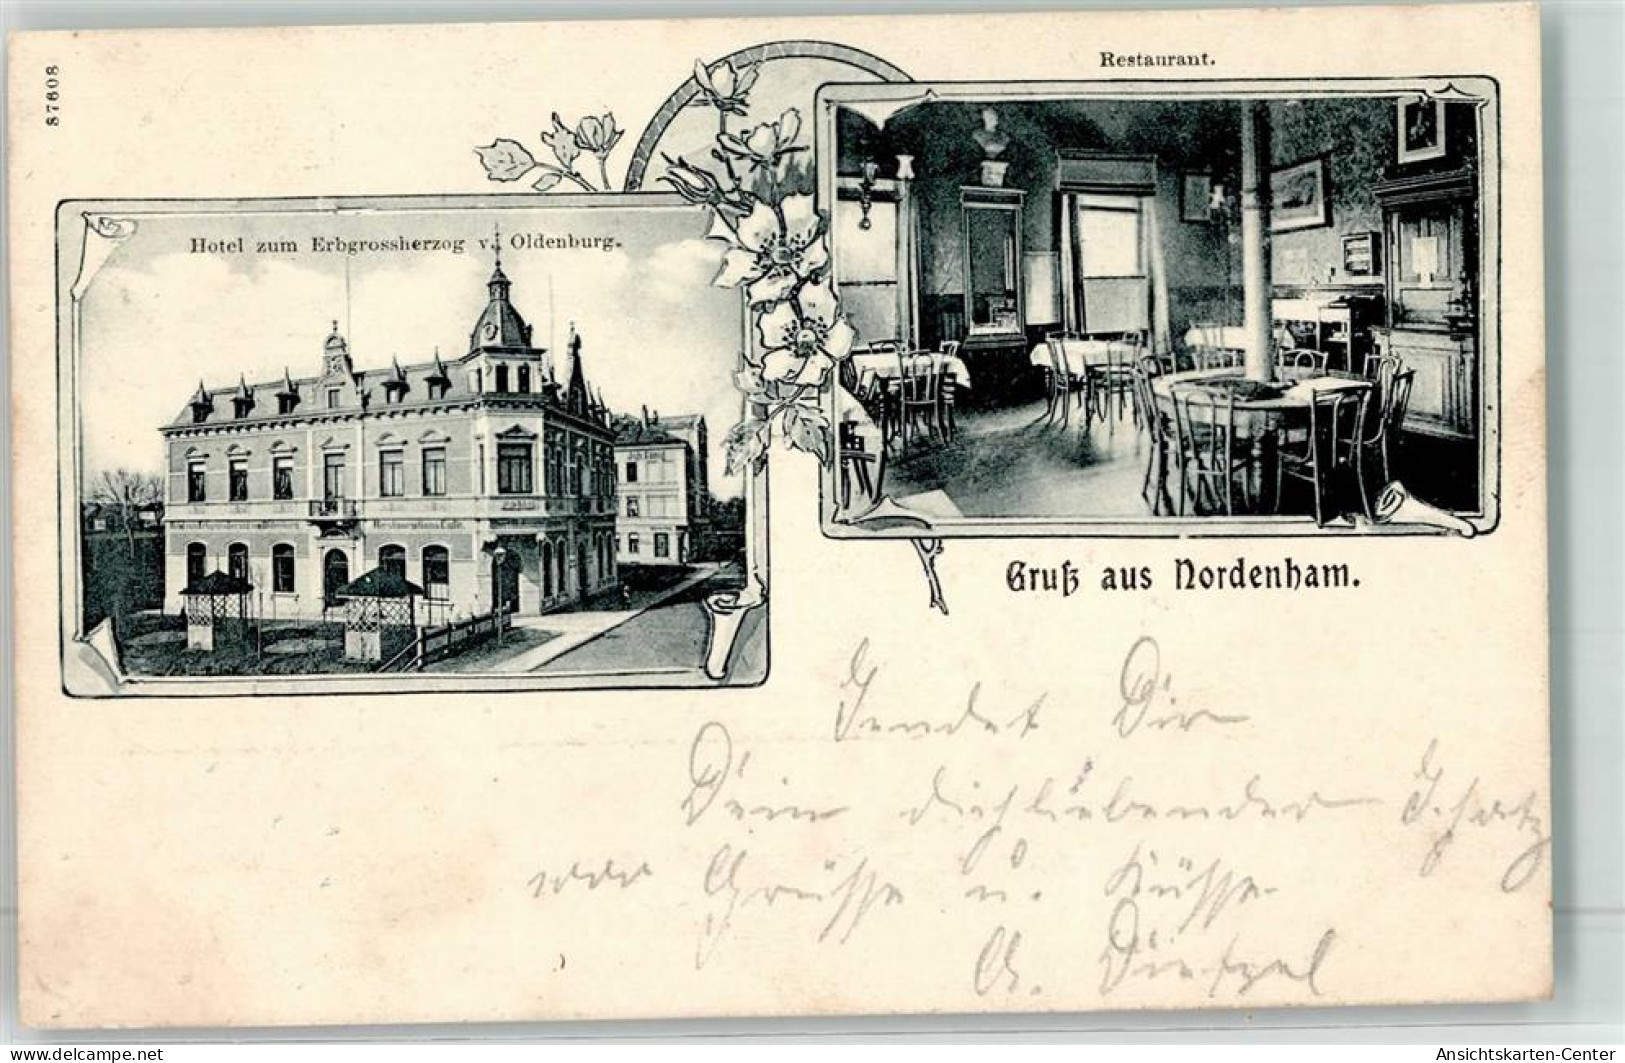 87608
Restaurant.
Hotel zum Erbgrossherzog v. Oldenburg.
Restauration u. Café.
Gruß aus Nordenham.
Sendet Dir
Dein dichliebender Schatz
Grüsse u. Küsse
G.
www.delcampe.net
Ansichtskarten-Center